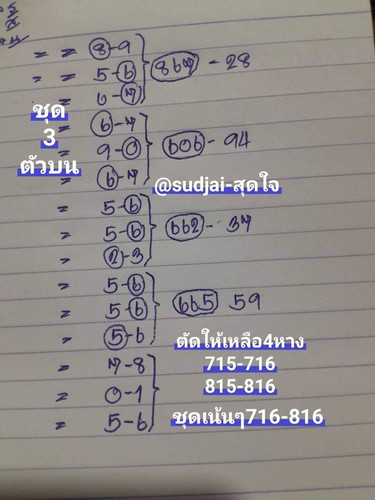 = = 8-9
= = 5-6 867 - 28
= 6-7
ชุด
3
ตัวบน
= 6-7
9-0 606 - 94
= 6-7
@sudjai-สุดใจ
= 5-6
= 5-6 662 - 37
= 2-3
= 5-6
= 5-6 665 59
= 5-6
ตัดให้เหลือ4หาง
715-716
815-816
ชุดเน้นๆ716-816
= 7-8
= 0-1
= 5-6